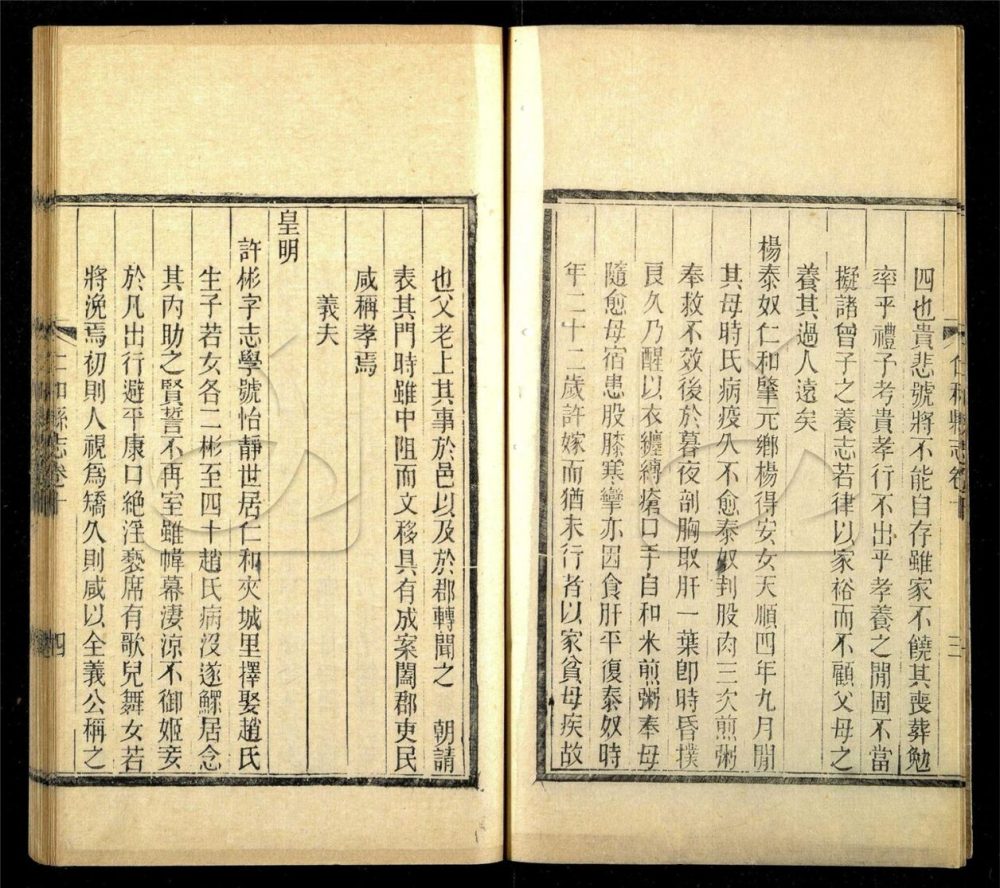 四也貴悲號將不能自存雖家不饒其喪葬勉
率乎禮予考貴孝行不出乎孝養之閒固不當
擬諸曾子之養志若律以家裕而不顧父母之
養其過人遠矣
楊泰奴仁和肇元鄉楊得安女天順四年九月閒
其母時氏病疫久不愈泰奴刲股肉三次煎粥
奉救不效後於暮夜剖胸取肝一葉卽時昏撲
良久乃醒以衣纏縛瘡口手自和米煎粥奉母
隨愈母宿患股膝寒攣亦因食肝平復泰奴時
年二十二歲許嫁而猶未行者以家貧母疾故
仁和縣志卷十
三
也父老上其事於邑以及於郡轉聞之 朝請
表其門時雖中阻而文移具有成案闔郡吏民
咸稱孝焉
義夫
皇明
許彬字志學號怡靜世居仁和夾城里擇娶趙氏
生子若女各二彬至四十趙氏病沒遂鰥居念
其內助之賢誓不再室雖幃幕淒涼不御姬妾
於凡出行避平康口絶淫褻席有歌兒舞女若
將浼焉初則人視爲矯久則咸以全義公稱之
仁和縣志卷十
四